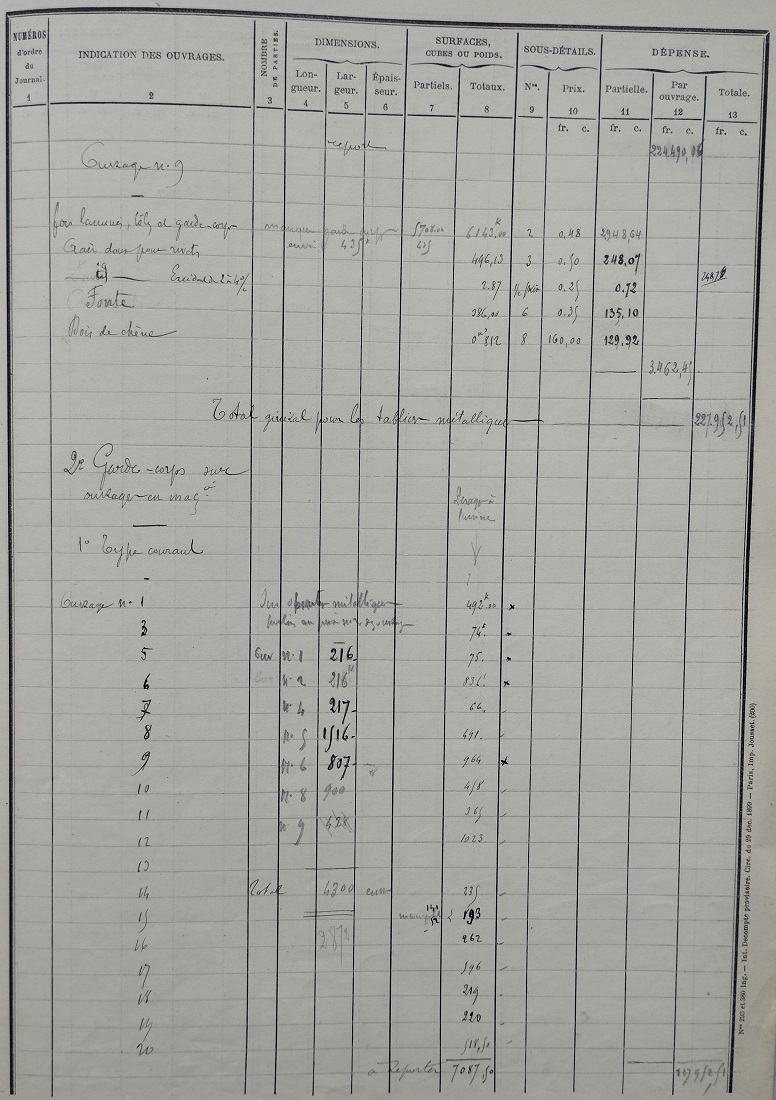 NUMÉROS d'ordre du Journal.
INDICATION DES OUVRAGES.
NOMBRE DE PARTIES.
DIMENSIONS.
Longueur. Largeur. Épaisseur.
SURFACES, CUBES OU POIDS.
Partiels. Totaux.
SOUS-DÉTAILS.
Nos. Prix.
DÉPENSE.
Partielle. Par ouvrage. Totale.
1 2 3 4 5 6 7 8 9 10 11 12 13
fr. c. fr. c. fr. c. fr. c.
report 224490,06
Ouvrage n° 9
fers laminés, tôles et garde-corps garde corps 5708.00 6143k.00 2 0,48 2948,64
435k 435
Acier doux pour rivets 496,13 3 0.50 248,07
Excédent de 2 à 4% 2.87 1/2 prix 0.25 0.72
Fonte 386,00 6 0.35 135,10
Bois de chêne 0m3812 8 160,00 129.92
3.462,45
Total général pour les tabliers métalliques 227.952,51
2° Garde-corps sur
ouvrages en maçrie
Pesage à l'usine
1° Type courant
Ouvrage n° 1 métallique 492k.00 x
3 74k.
5 Ouv n° 1 216 75.
6 n° 2 216 836 x
7 n° 4 217 66
8 n° 5 1516 491
9 n° 6 807 964 x
10 n° 8 900 458
11 n 9 428 365
12 1023
13
14 Total 4300 235
15 141 52 { 193
16 2872 262
17 596
18 219
19 220
20 518,50
à Reporter 7087,50 227952,51
Nos 295 et 380 Ing. — Int. Décompte provisoire. Circ. du 29 déc. 1869 — Paris, Imp. Jousset. (200)